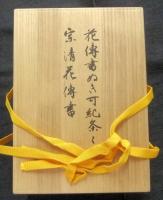 花傳書ぬき可紀条々
宗清花傳書